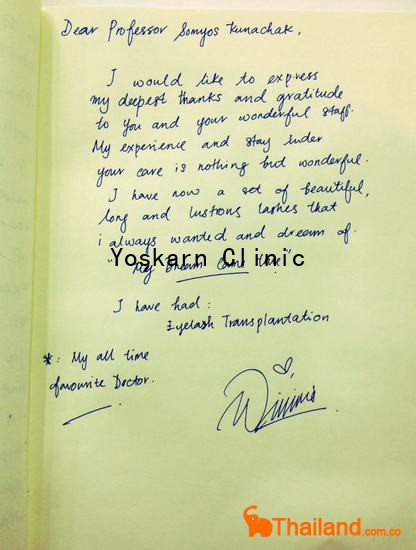 Dear Professor Somyos Kunachak,
I would like to express
my deepest thanks and gratitude
to you and your wonderful staff.
My experience and stay under
your care is nothing but wonderful.
I have now a set of beautiful,
long and lustrous lashes that
i always wanted and dream of.
"My Dream Came true"
Yoskarn Clinic
I have had:
Eyelash Transplantation
*: My all time
favourite Doctor.
Thailand.com.co